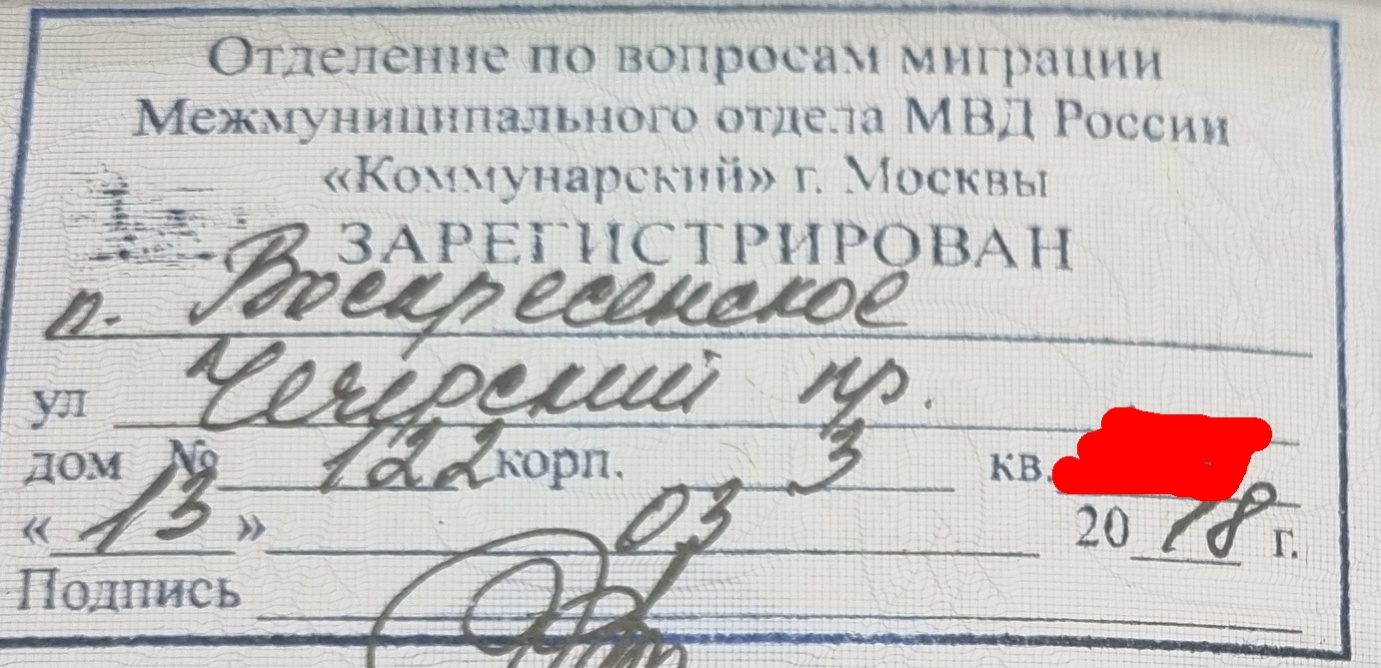 Отделение по вопросам миграции
Межмуниципального отдела МВД России
«Коммунарский» г. Москвы
ЗАРЕГИСТРИРОВАН
п. Воскресенское
ул Чечерский пр.
дом № 122 корп. 3 кв.
« 13 » 03 20 18 г.
Подпись